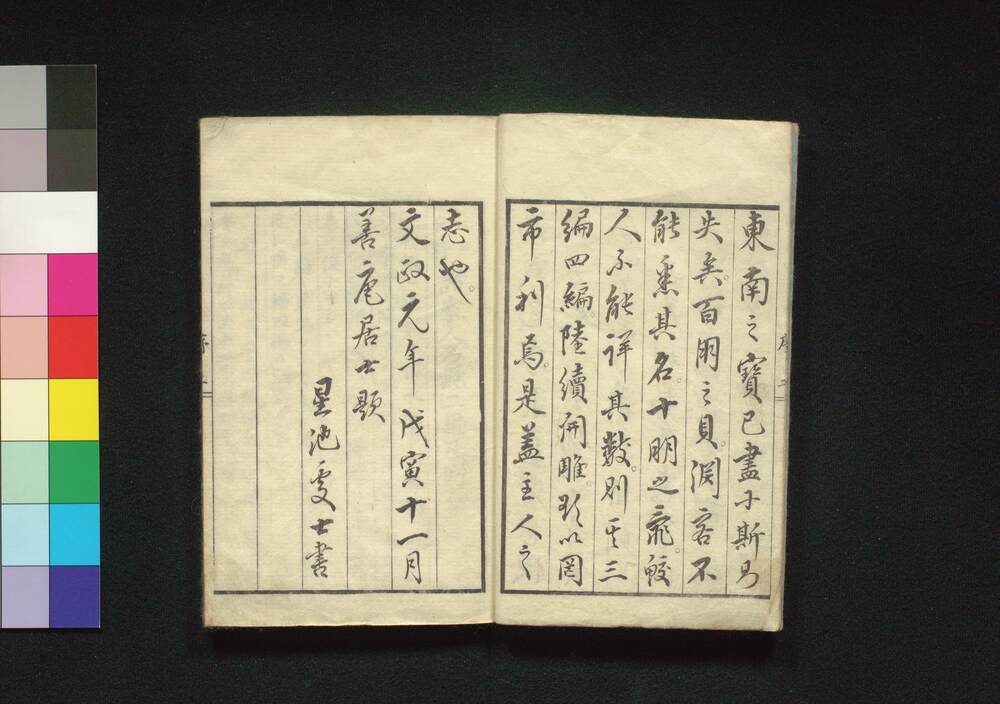 東南之寶已盡于斯乃
失矣。百朋之貝。淵客不
能悉其名。十朋之龜。鮫
人不能詳其數。則其三
編四編。陸續開雕。欲以罔
市利焉。是蓋主人之
志也。
文政元年戊寅十一月
善庵居士題
星池處士書